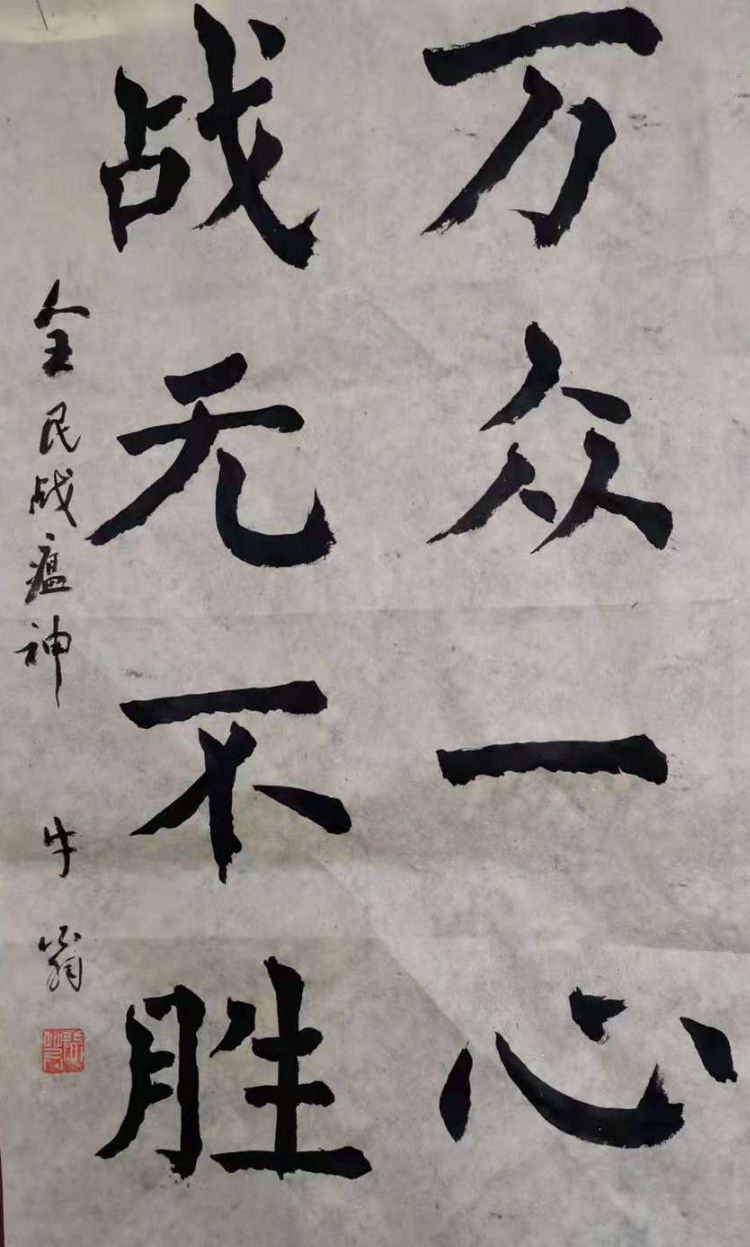 万众一心
战无不胜
全民战瘟神
牛翁